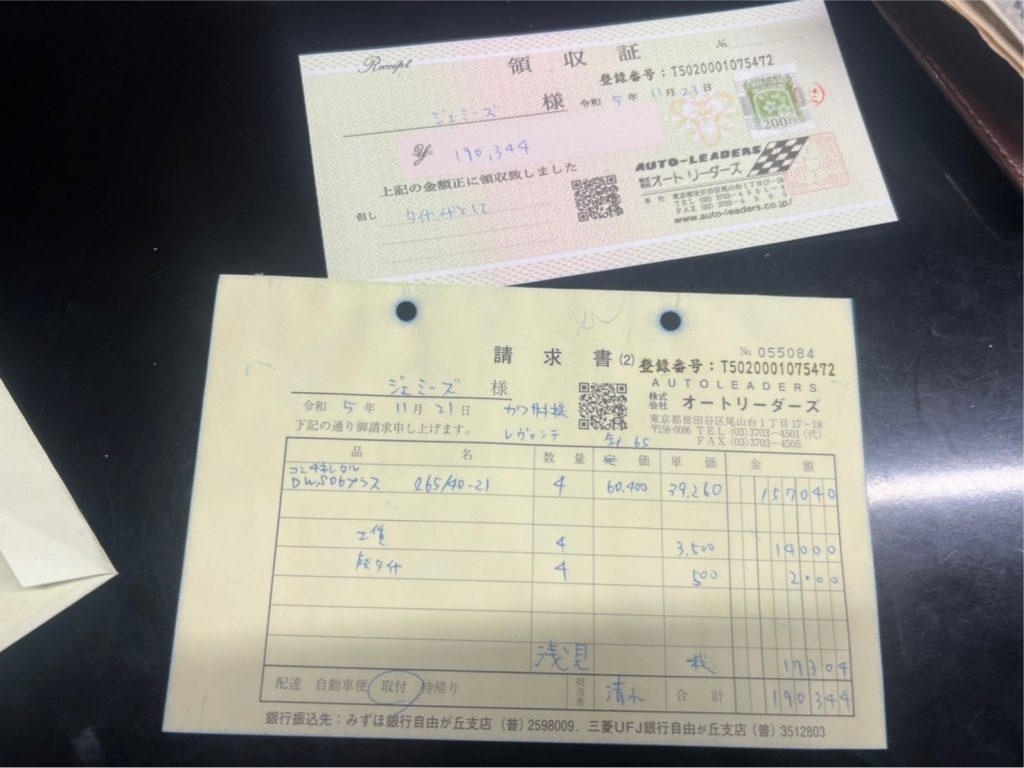 Receipt
領収証
№
登録番号：T5020001075472
ジェミーズ 様
令和 5 年 11 月 21 日
200円
¥ 190,344
上記の金額正に領収致しました
但し タイヤ代として
AUTO-LEADERS
株式会社 オートリーダーズ
本社 東京都世田谷区尾山台1丁目17-18
TEL (03) 3703-4501~4
FAX (03) 3703-4505
www.auto-leaders.co.jp/
請求書(2)
№ 055084
登録番号：T5020001075472
AUTOLEADERS
株式会社 オートリーダーズ
東京都世田谷区尾山台1丁目17-18
〒158-0086 TEL (03)3703-4501(代)
FAX (03)3703-4505
ジェミーズ 様
令和 5 年 11 月 21 日
下記の通り御請求申し上げます。
レヴァンテ
65
品 名 数量 定価 単価 金額
コンチネンタル
265/40-21 4 60,400 39,260 157040
工賃 4 3,500 14000
廃タイヤ 4 500 2000
浅見 税 17304
配達 自動車便 取付 持帰り 担当者 清水 合計 190344
銀行振込先：みずほ銀行自由が丘支店（普）2598009．三菱UFJ銀行自由が丘支店（普）3512803